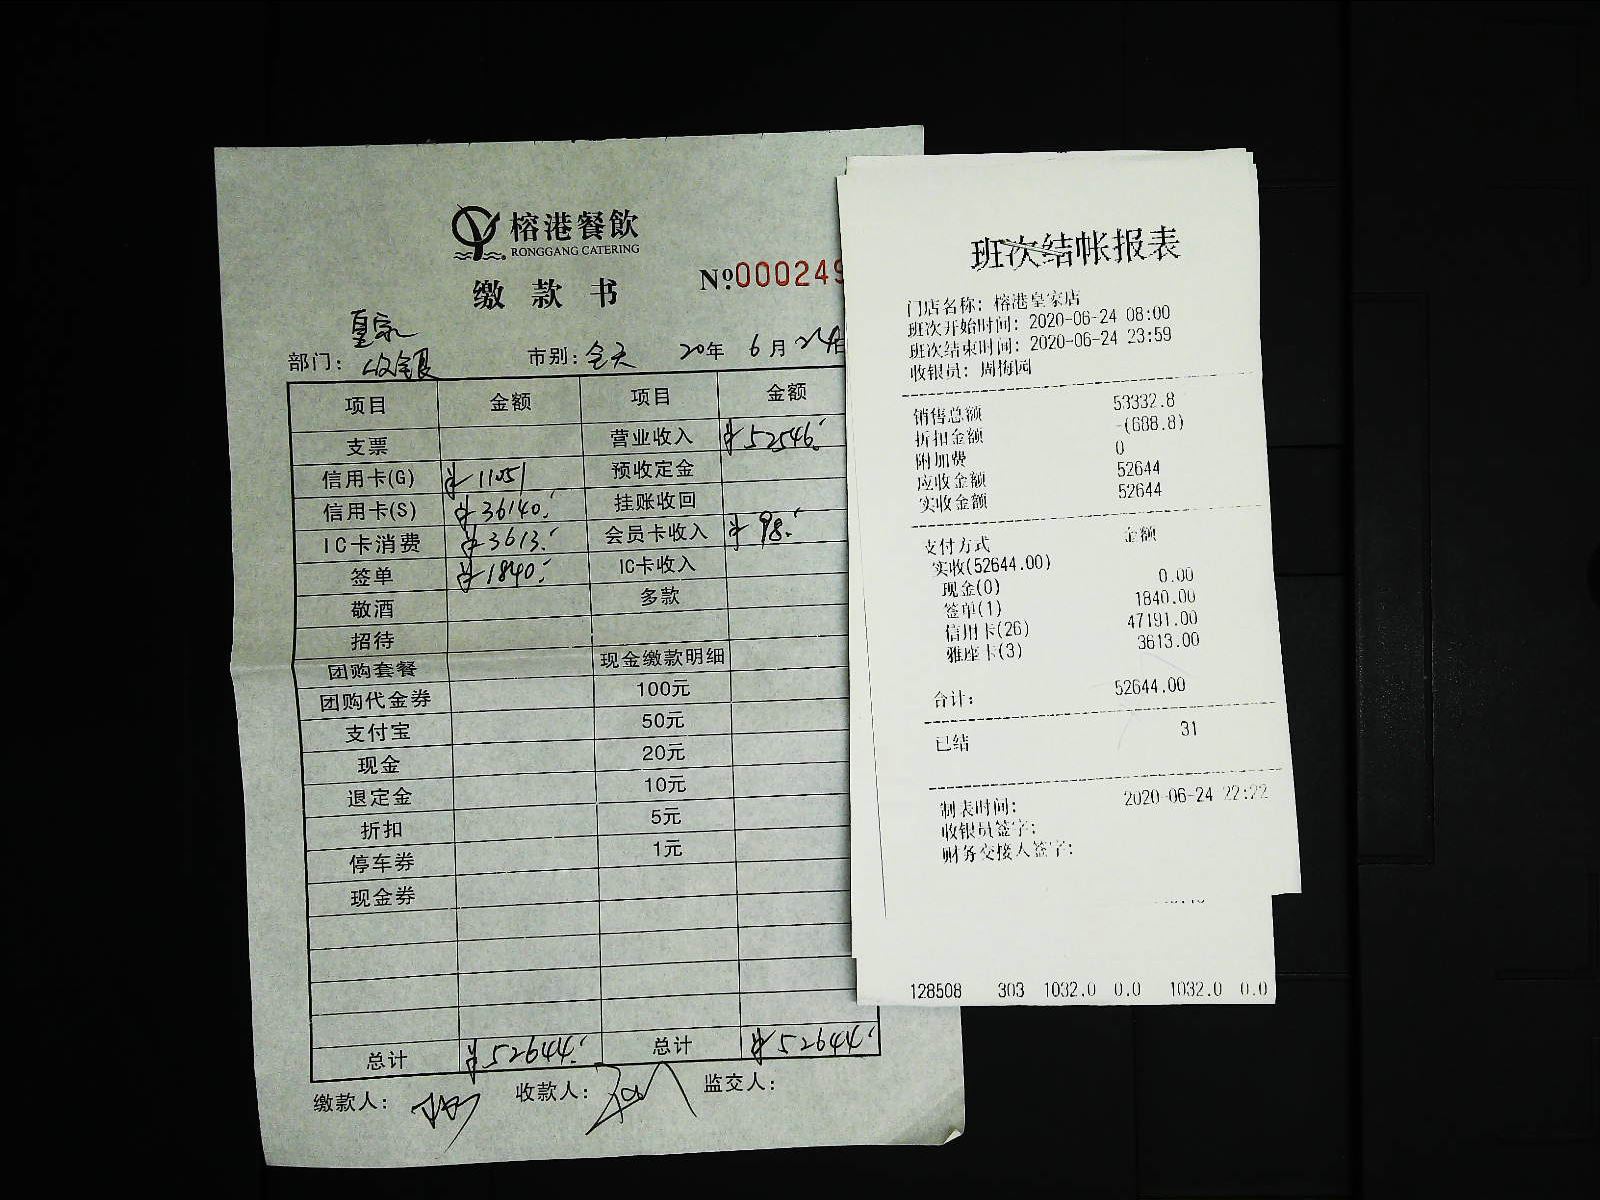 榕港餐飲
RONGGANG CATERING
缴款书
Nº000249
皇家
部门: 收银 市别: 全天 20年 6月24日
项目 金额 项目 金额
支票 营业收入 ¥52546.
信用卡(G) ¥11051 预收定金
信用卡(S) ¥36140. 挂账收回
IC卡消费 ¥3613. 会员卡收入 ¥98.
签单 ¥1840. IC卡收入
敬酒 多款
招待
团购套餐 现金缴款明细
团购代金券 100元
支付宝 50元
现金 20元
退定金 10元
折扣 5元
停车券 1元
现金券
总计 ¥52644. 总计 ¥52644.
缴款人: 收款人: 监交人:
班次结帐报表
门店名称: 榕港皇家店
班次开始时间: 2020-06-24 08:00
班次结束时间: 2020-06-24 23:59
收银员: 周梅园
销售总额 53332.8
折扣金额 -(688.8)
附加费 0
应收金额 52644
实收金额 52644
支付方式 金额
实收(52644.00)
现金(0) 0.00
签单(1) 1840.00
信用卡(26) 47191.00
雅座卡(3) 3613.00
合计: 52644.00
已结 31
制表时间: 2020-06-24 22:22
收银员签字:
财务交接人签字:
128508 303 1032.0 0.0 1032.0 0.0